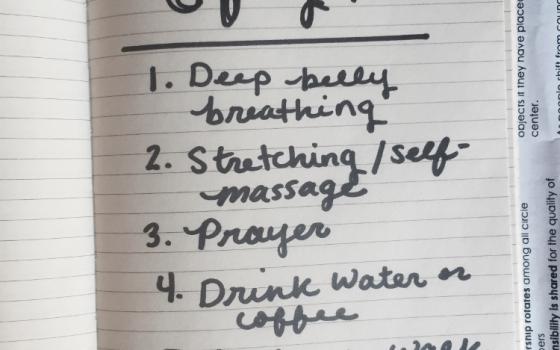 1. Deep belly
breathing
2. Stretching / self-
massage
3. Prayer
4. Drink water or
coffee
objects if they have placed
center.
rship rotates among all circle
nsibility is shared for the quality of